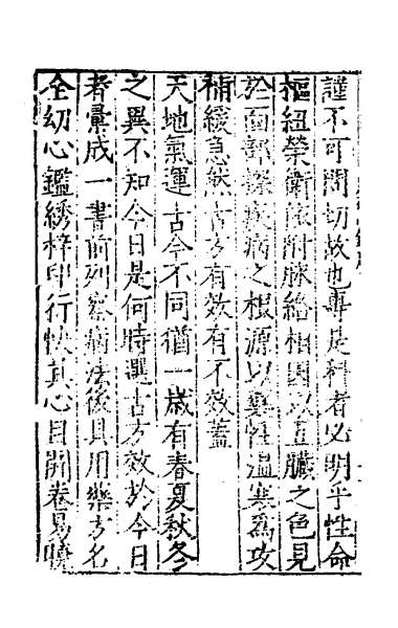 謹不可問切故也專是科者必明乎性命
樞紐榮衛依附脉絡相因以五臟之色見
於面部探疾病之根源以藥性温寒為攻
補緩急然古方有效有不效蓋
天地氣運古今不同猶一歲有春夏秋冬
之異不知今日是何時選古方效於今日
者彙成一書前列察病法後具用藥方名
全幼心鑑綉梓印行快其心目開卷易曉